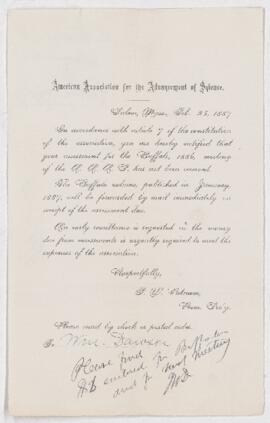 American Association for the Advancement of Science.
Salem, Mass., Feb. 25, 1887
In accordance with article 7 of the constitution
of the association, you are hereby notified that
your assessment for the Buffalo, 1886, meeting
of the A. A. A. S. has not been received.
The Buffalo volume, published in January,
1887, will be forwarded by mail immediately on
receipt of the assessment due.
An early remittance is requested as the money
due from assessments is urgently required to meet the
expenses of the association.
Respectfully,
F. W. Putnam,
Perm. Sec'y.
Please remit by check or postal order
To Wm. Dawson
Please find
enclosed for Buffalo
and for next meeting